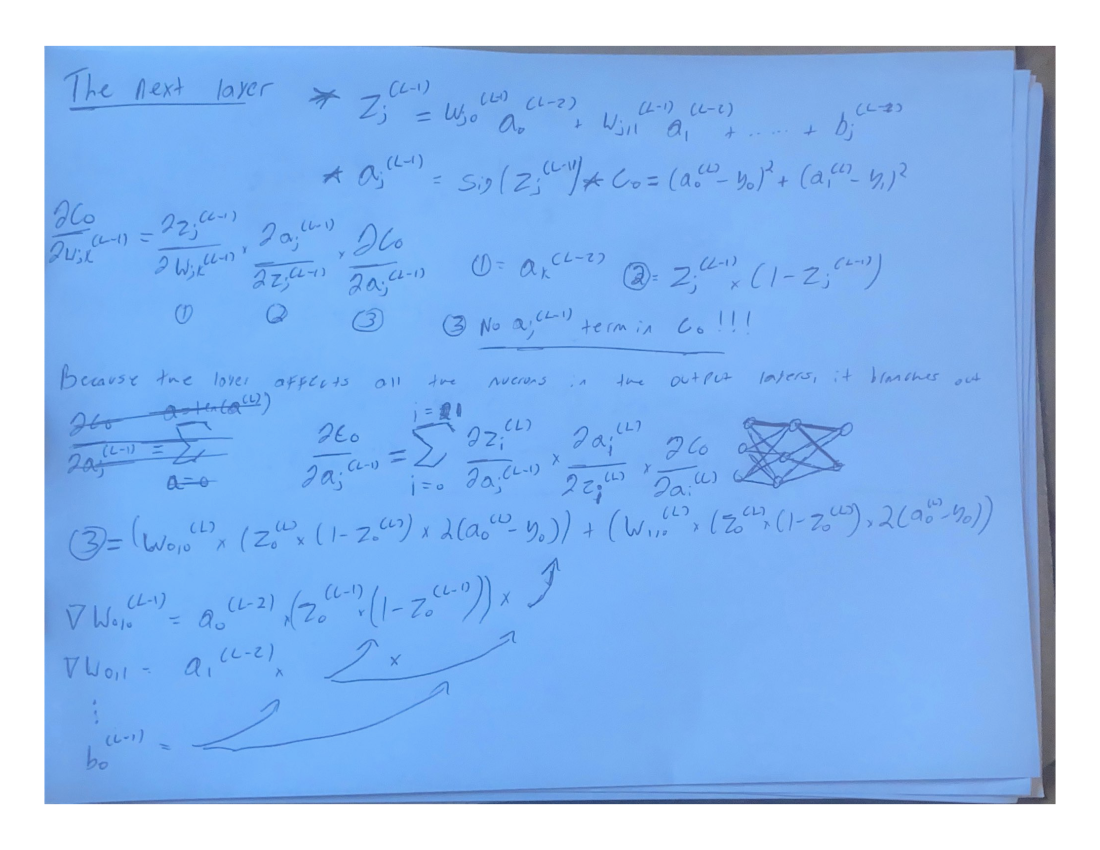 The next layer
* Zj^(L-1) = Wj0^(L-1) a0^(L-2) + Wj,1^(L-1) a1^(L-2) + ..... + bj
* aj^(L-1) = Sig(Zj^(L-1)) * C0 = (a0^(L) - y0)^2 + (a1^(L) - y1)^2
∂C0/∂Wjk^(L-1) = ∂Zj^(L-1)/∂Wjk^(L-1) × ∂aj^(L-1)/∂Zj^(L-1) × ∂C0/∂aj^(L-1) ① = ak^(L-2) ② = Zj^(L-1) × (1 - Zj^(L-1))
① ② ③ ③ No aj^(L-1) term in C0 !!!
Because the layer affects all the nuerons in the output layers, it branches out
∂C0/∂aj^(L-1) = Σ a=0 a=len(a^(L))
∂C0/∂aj^(L-1) = Σ i=0 i=1 ∂Zi^(L)/∂aj^(L-1) × ∂ai^(L)/∂Zi^(L) × ∂C0/∂ai^(L)
③ = (W0,0^(L) × (Z0^(L) × (1 - Z0^(L)) × 2(a0^(L) - y0)) + (W1,0^(L) × (Z0^(L) × (1 - Z0^(L)) × 2(a0^(L) - y0))
∇W0,0^(L-1) = a0^(L-2) × (Z0^(L-1) × (1 - Z0^(L-1))) ×
∇W0,1 = a1^(L-2) × ×
⋮
b0^(L-1) =